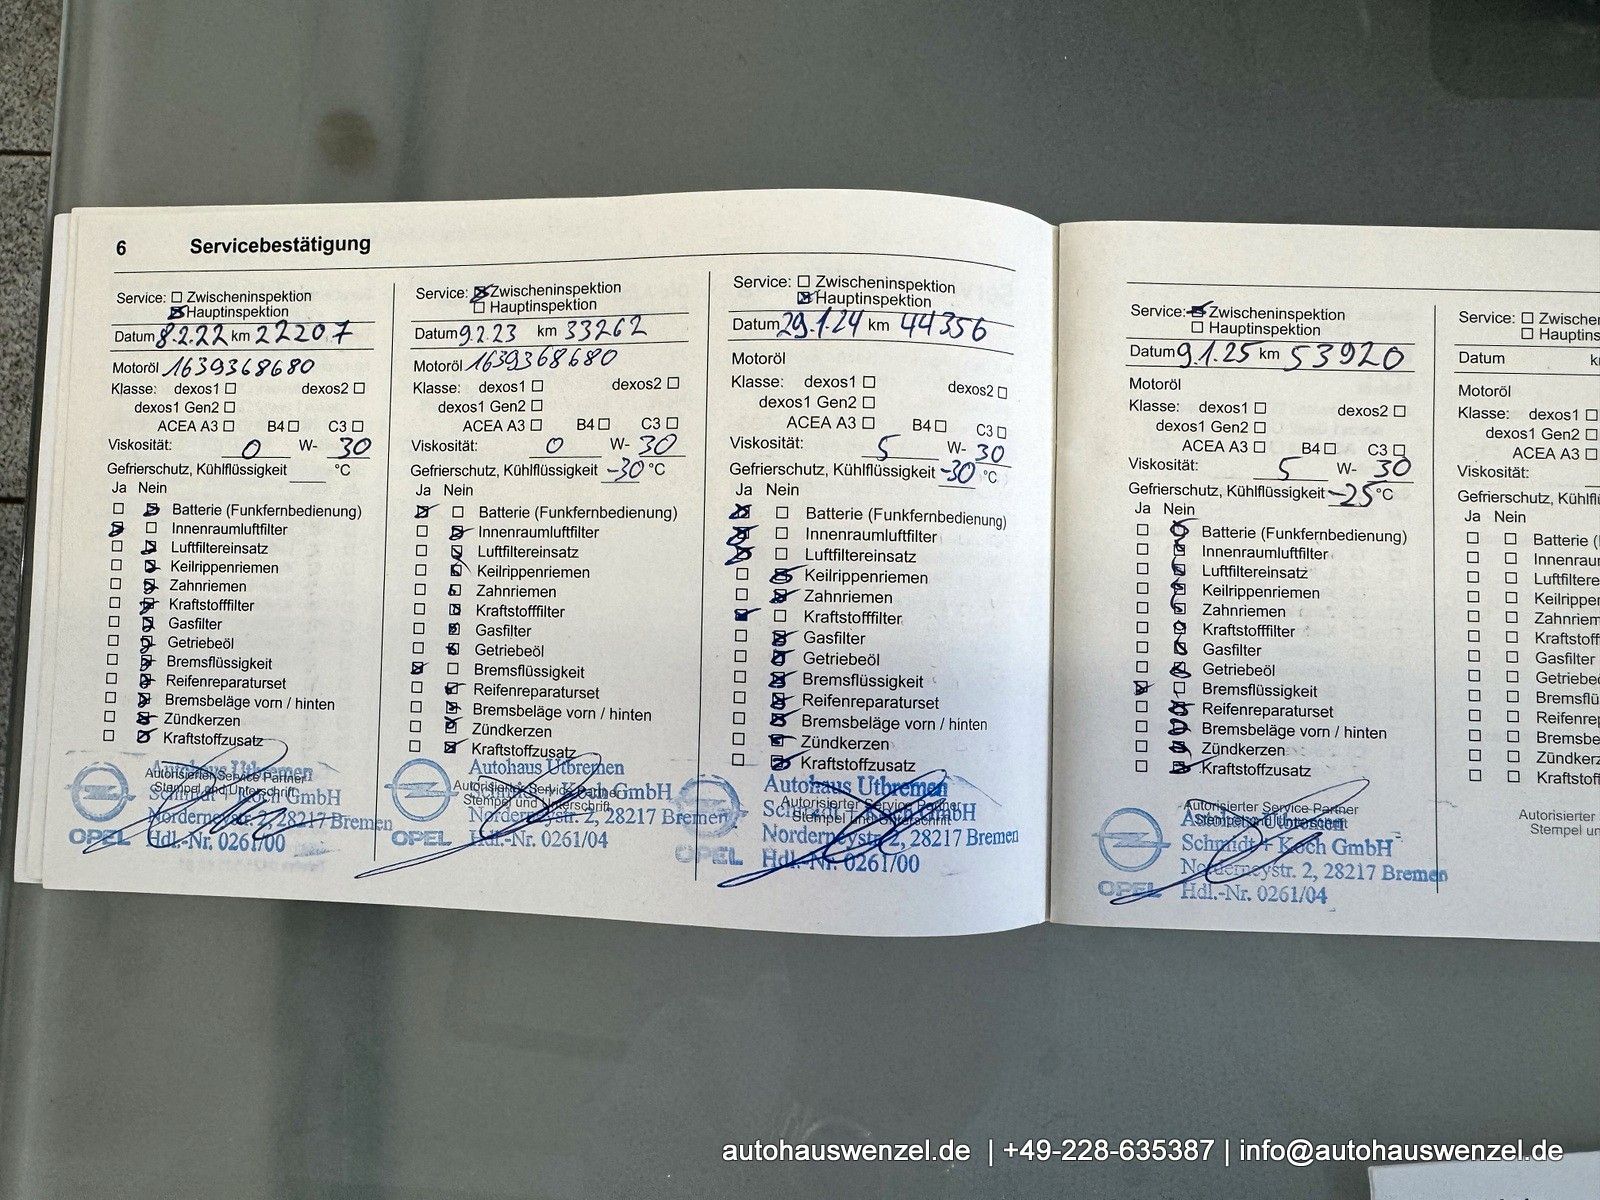 6 Servicebestätigung
Service: Zwischeninspektion
Hauptinspektion
Datum 8.2.22 km 22207
Motoröl 1639368680
Klasse: dexos1 dexos2
dexos1 Gen2
ACEA A3 B4 C3
Viskosität: 0 W- 30
Gefrierschutz, Kühlflüssigkeit °C
Ja Nein
Batterie (Funkfernbedienung)
Innenraumluftfilter
Luftfiltereinsatz
Keilrippenriemen
Zahnriemen
Kraftstofffilter
Gasfilter
Getriebeöl
Bremsflüssigkeit
Reifenreparaturset
Bremsbeläge vorn / hinten
Zündkerzen
Kraftstoffzusatz
Autorisierter Service Partner
Stempel und Unterschrift
Autohaus Utbremen
Schmidt + Koch GmbH
Norderneystr. 2, 28217 Bremen
OPEL Hdl.-Nr. 0261/00
Service: Zwischeninspektion
Hauptinspektion
Datum 9.2.23 km 33262
Motoröl 1639368680
Klasse: dexos1 dexos2
dexos1 Gen2
ACEA A3 B4 C3
Viskosität: 0 W- 30
Gefrierschutz, Kühlflüssigkeit -30 °C
Ja Nein
Batterie (Funkfernbedienung)
Innenraumluftfilter
Luftfiltereinsatz
Keilrippenriemen
Zahnriemen
Kraftstofffilter
Gasfilter
Getriebeöl
Bremsflüssigkeit
Reifenreparaturset
Bremsbeläge vorn / hinten
Zündkerzen
Kraftstoffzusatz
Autorisierter Service Partner
Stempel und Unterschrift
Autohaus Utbremen
Schmidt + Koch GmbH
Norderneystr. 2, 28217 Bremen
OPEL Hdl.-Nr. 0261/04
Service: Zwischeninspektion
Hauptinspektion
Datum 29.1.24 km 44356
Motoröl
Klasse: dexos1 dexos2
dexos1 Gen2
ACEA A3 B4 C3
Viskosität: 5 W- 30
Gefrierschutz, Kühlflüssigkeit -30 °C
Ja Nein
Batterie (Funkfernbedienung)
Innenraumluftfilter
Luftfiltereinsatz
Keilrippenriemen
Zahnriemen
Kraftstofffilter
Gasfilter
Getriebeöl
Bremsflüssigkeit
Reifenreparaturset
Bremsbeläge vorn / hinten
Zündkerzen
Kraftstoffzusatz
Autorisierter Service Partner
Stempel und Unterschrift
Autohaus Utbremen
Schmidt + Koch GmbH
Norderneystr. 2, 28217 Bremen
OPEL Hdl.-Nr. 0261/00
Service: Zwischeninspektion
Hauptinspektion
Datum 9.1.25 km 53920
Motoröl
Klasse: dexos1 dexos2
dexos1 Gen2
ACEA A3 B4 C3
Viskosität: 5 W- 30
Gefrierschutz, Kühlflüssigkeit -25 °C
Ja Nein
Batterie (Funkfernbedienung)
Innenraumluftfilter
Luftfiltereinsatz
Keilrippenriemen
Zahnriemen
Kraftstofffilter
Gasfilter
Getriebeöl
Bremsflüssigkeit
Reifenreparaturset
Bremsbeläge vorn / hinten
Zündkerzen
Kraftstoffzusatz
Autorisierter Service Partner
Stempel und Unterschrift
Autohaus Utbremen
Schmidt + Koch GmbH
Norderneystr. 2, 28217 Bremen
OPEL Hdl.-Nr. 0261/04
Service: Zwischeninspe
Hauptinspekti
Datum k
Motoröl
Klasse: dexos1
dexos1 Gen2
ACEA A3
Viskosität:
Gefrierschutz, Kühlflü
Ja Nein
Batterie (
Innenraum
Luftfiltere
Keilrippen
Zahnriem
Kraftstoff
Gasfilter
Getriebeö
Bremsflüs
Reifenrep
Bremsbe
Zündkerz
Kraftstoff
Autorisierter
Stempel un
autohauswenzel.de | +49-228-635387 | info@autohauswenzel.de